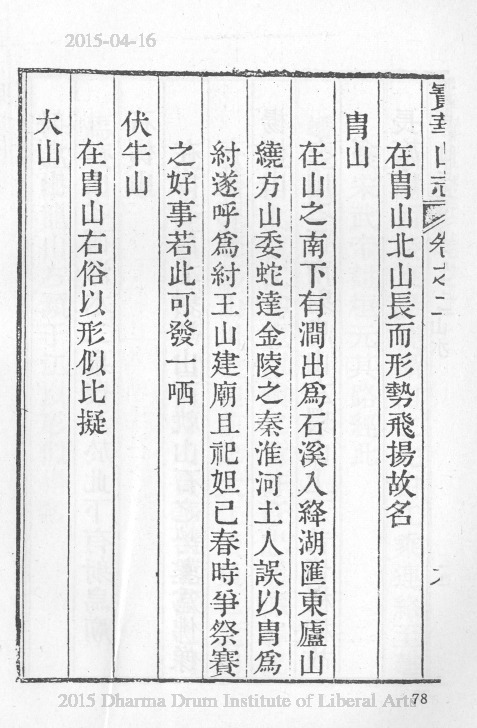 2015-04-16
寶華山志 卷之二 山水
在冑山北山長而形勢飛揚故名
冑山
在山之南下有澗出爲石溪入絳湖匯東廬山
繞方山委蛇達金陵之秦淮河土人誤以冑爲
紂遂呼爲紂王山建廟且祀妲己春時爭祭賽
之好事若此可發一哂
伏牛山
在冑山右俗以形似比擬
大山
78
2015 Dharma Drum Institute of Liberal Arts